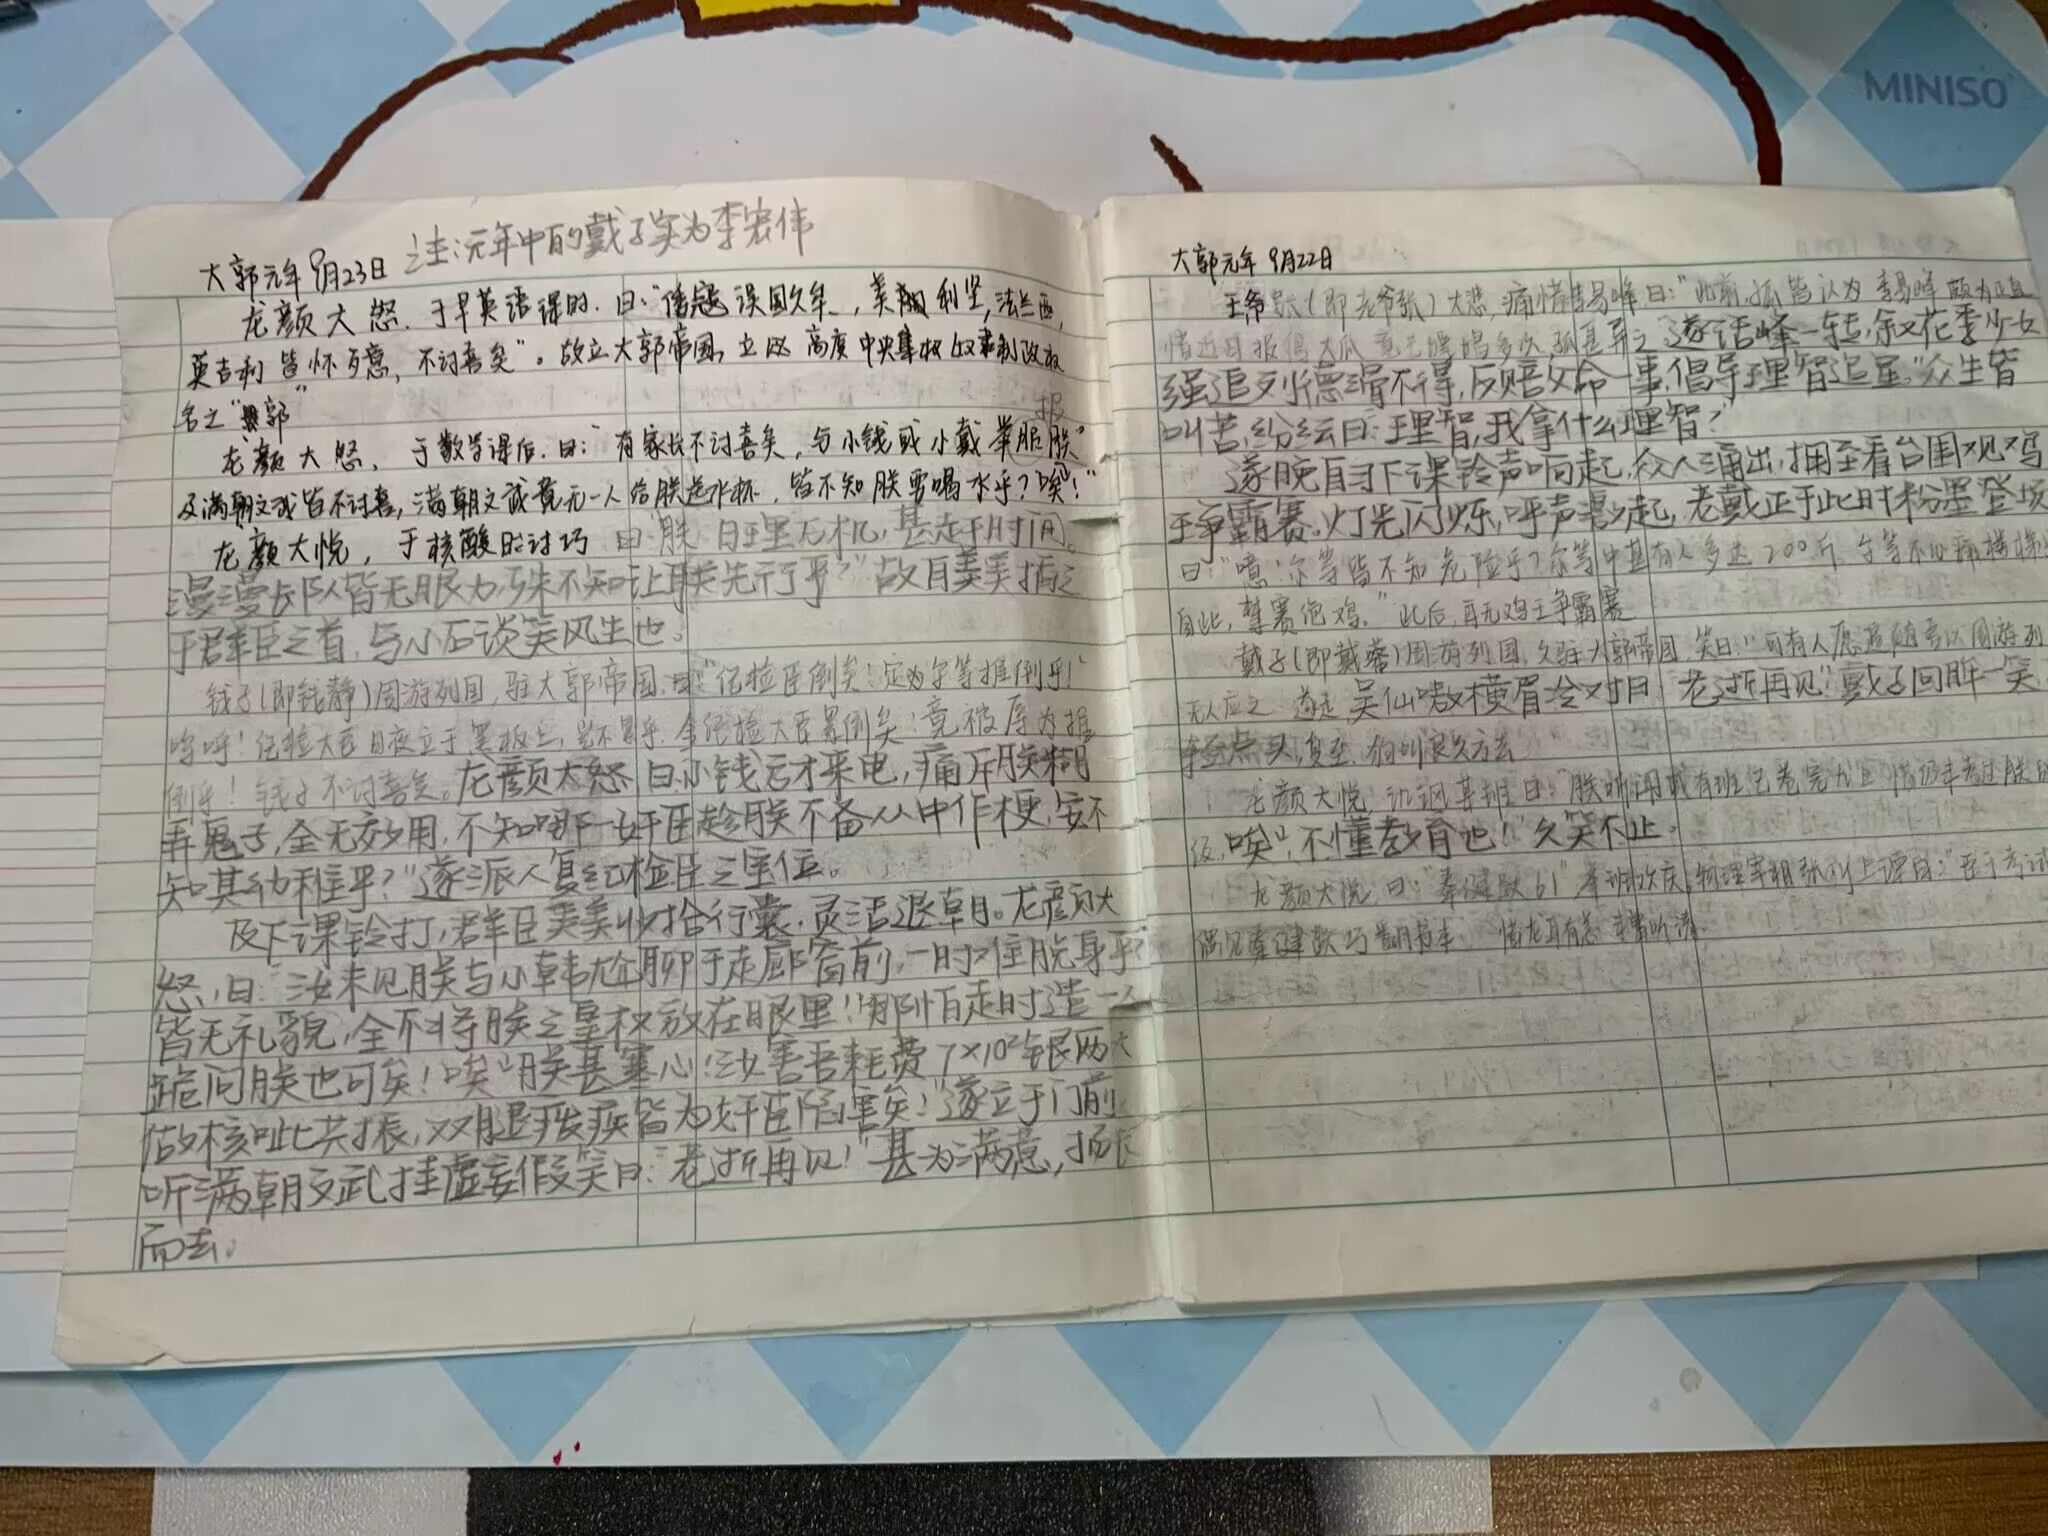 MINISO
注:元年中的戴子实为李宏伟
大郭元年9月23日
龙颜大怒,于早英语课时,曰:“倭寇误国久矣,美利坚,法兰西,
英吉利皆怀歹意,不讨喜矣”。故立大郭帝国,立以高度中央集权奴隶制政权
名之“郭”
龙颜大怒,于数学课后,曰:“有家长不讨喜矣,与小钱或小戴举报朕”
及满朝文武皆不讨喜,满朝文武竟无一人给朕送水杯,皆不知朕要喝水乎?唉!”
龙颜大悦,于核酸时讨巧 曰“朕日理万机,甚走于时间。
漫漫长队皆无眼力,殊不知让朕先行乎?”故自美美插之
于群臣之首,与小石谈笑风生也。
钱子(即钱静)周游列国,驻大郭帝国,曰:“纪检臣倒矣!定为尔等推倒乎!
呜呼!纪检大臣日夜立于黑板上,岂不累乎,令纪检大臣累倒矣!竟被辱为推
倒乎!钱子不讨喜矣。龙颜大怒 曰小钱方才来电,痛斥朕糊
弄鬼子,全无妙用,不知哪一奸臣趁朕不备从中作梗,安不
知其幼稚乎?”遂派人复纪检臣之宝位。
及下课铃打,群臣美美收拾行囊,灵活退朝。龙颜大
怒,曰:“汝未见朕与小韩尬聊于走廊窗前,一时难脱身乎?
皆无礼貌,全不将朕之皇权放在眼里!哪怕走时造一个
跪问朕也可矣!唉”朕甚寒心!汝害吾耗费7×10²银两大
做核呲共振,双腿残疾皆为奸臣陷害矣!”遂立于门前
听满朝文武挂虚妄假笑曰:“老浙再见!”甚为满意,扬长
而去。
大郭元年9月22日
王爷(即老爷张)大悲,痛惜李易峰曰:“此前,孤皆认为李易峰颇为正直
惜近日报得大瓜竟已嫖娼多次,孤甚弃之”遂话峰一转,叙又花季少女
强追刘德滑不得,反赔父命一事,倡导理智追星。”众生皆
叫苦,纷纷曰:理智,我拿什么理智?”
遂晚自习下课铃声响起,众人涌出,拥至看台围观鸡
王争霸赛。灯光闪烁,呼声起,老戴正于此时粉墨登场
曰:“噫!尔等皆不知危险乎?尔等中甚有人多达200斤,尔等不心痛楼梯
自此,禁赛倦鸡。”此后,再无鸡王争霸赛
戴子(即戴蓉)周游列国,久驻大郭帝国,笑曰:“可有人愿追随吾以周游列
无人应之,遂走,吴仙嗷横眉冷对曰:“老浙再见!”戴子回眸一笑
轻点头,复至,狗叫良久方去
龙颜大悦,讥讽某班曰:“朕听闻或有班
饭,唉”,不懂教育也!”久笑不止。
龙颜大悦,曰:“秦健歇61”举班欢庆,物理宰相张刘上谏曰:“至于考试
偶见秦健歇巧翻书本,惜龙耳有恙,未曾听清